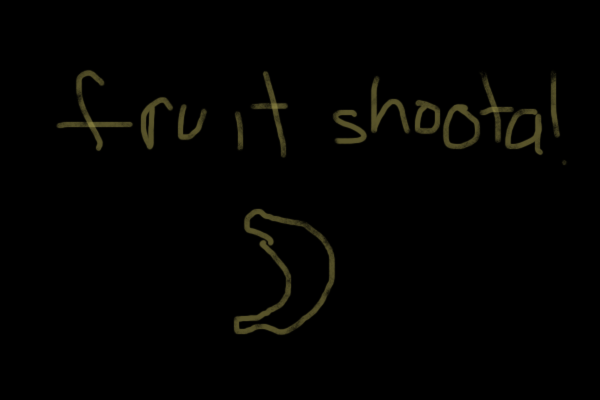 fruit shoota!